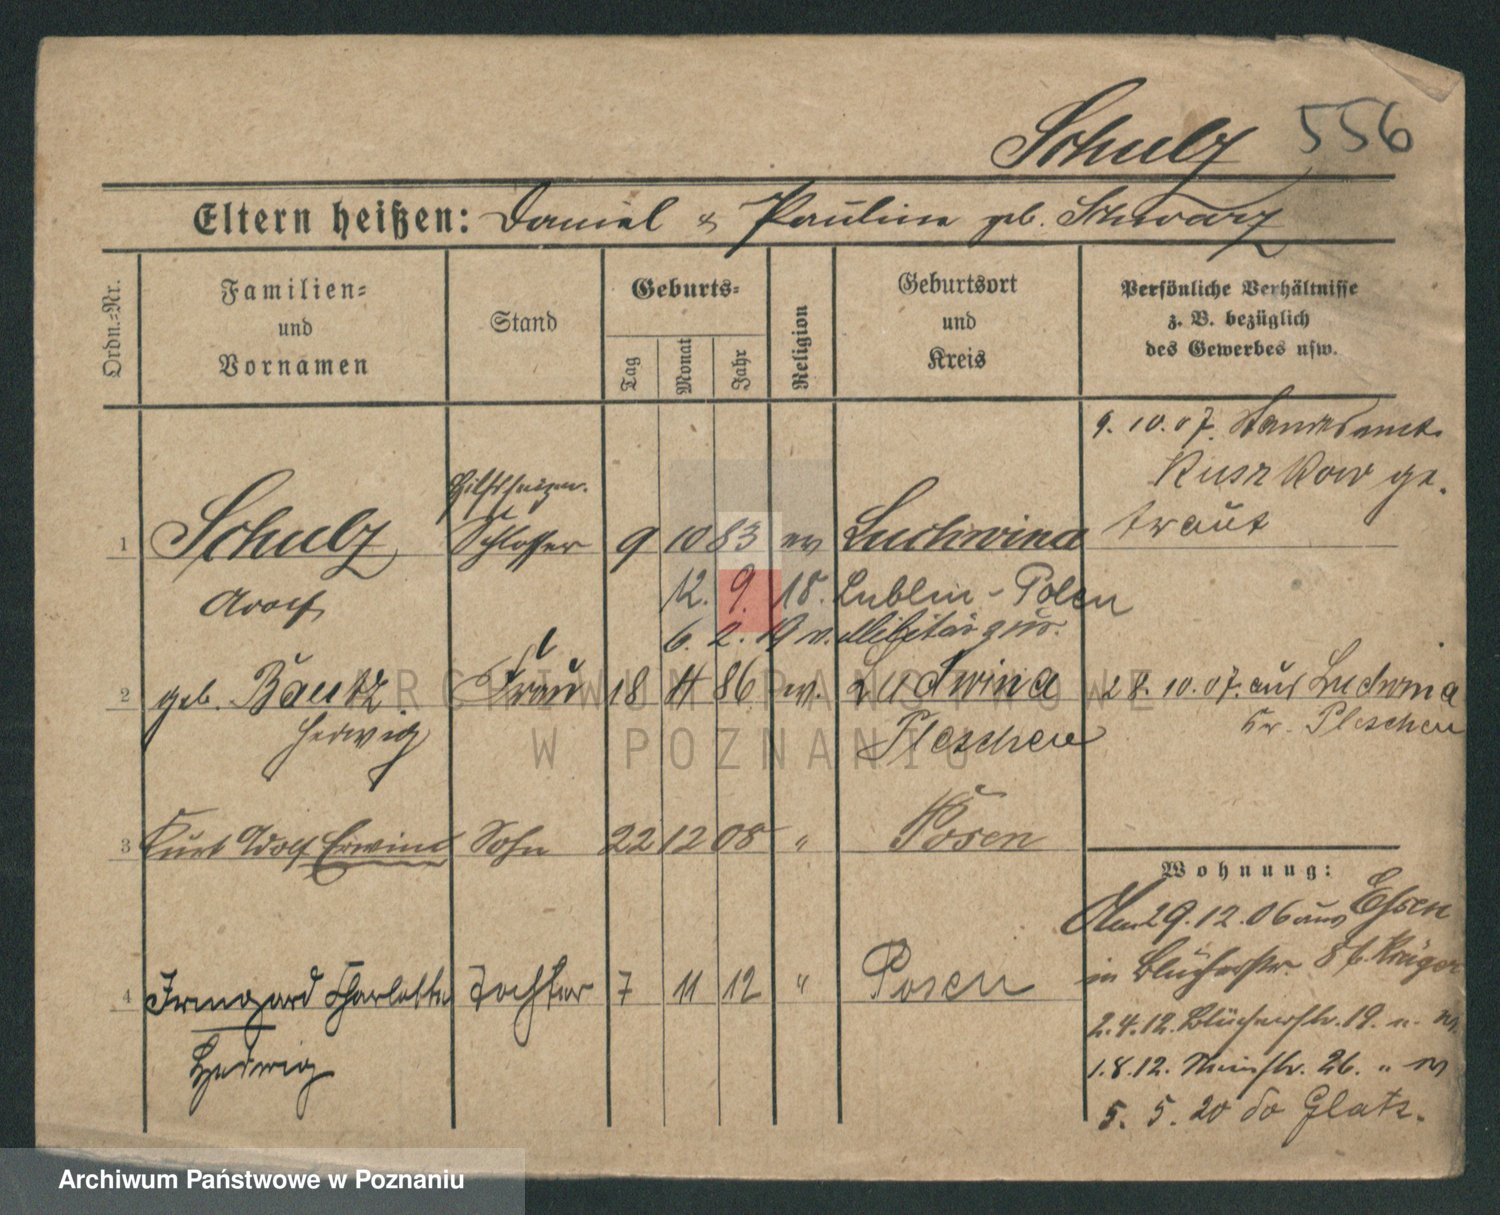 Schulz 556
Eltern heißen: Daniel & Pauline geb. Schwarz
Ordn.-Nr.
Familien-
und
Vornamen
Stand
Geburts-
Tag
Monat
Jahr
Religion
Geburtsort
und
Kreis
Persönliche Verhältnisse
z. B. bezüglich
des Gewerbes usw.
9. 10. 07. Standesamt
Ruszkow ge-
traut
Hilfsheizer.
1 Schulz Schlosser 9 10 83 ev Ludwina
Adolf 12. 9. 18. Lublin - Polen
6. 2. 19 v. Militär zur.
2 geb. Bautz Frau 18 11 86 ev. Ludwina 28. 10. 07. aus Ludwina
Hedwig Pleschen Kr. Pleschen
3 Kurt Adolf Erwin Sohn 22 12 08 " Posen
Wohnung:
Am 29. 12. 06 aus Essen
in Blücherstr. 8 b. Krüger
4 Irmgard Charlotte Tochter 7 11 12 " Posen
Hedwig
2. 4. 12. Blücherstr. 19. n.
1. 8. 12. 26. "
5. 5. 20 do Glatz.
ARCHIWUM PAŃSTWOWE
W POZNANIU
Archiwum Państwowe w Poznaniu